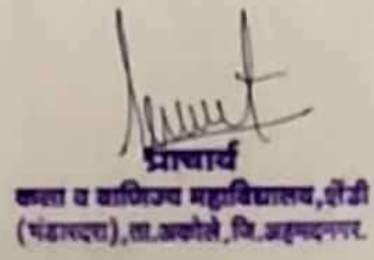 प्राचार्य
कला व वाणिज्य महाविद्यालय,शेंडी
(भंडारदरा),ता.अकोले,जि.अहमदनगर.